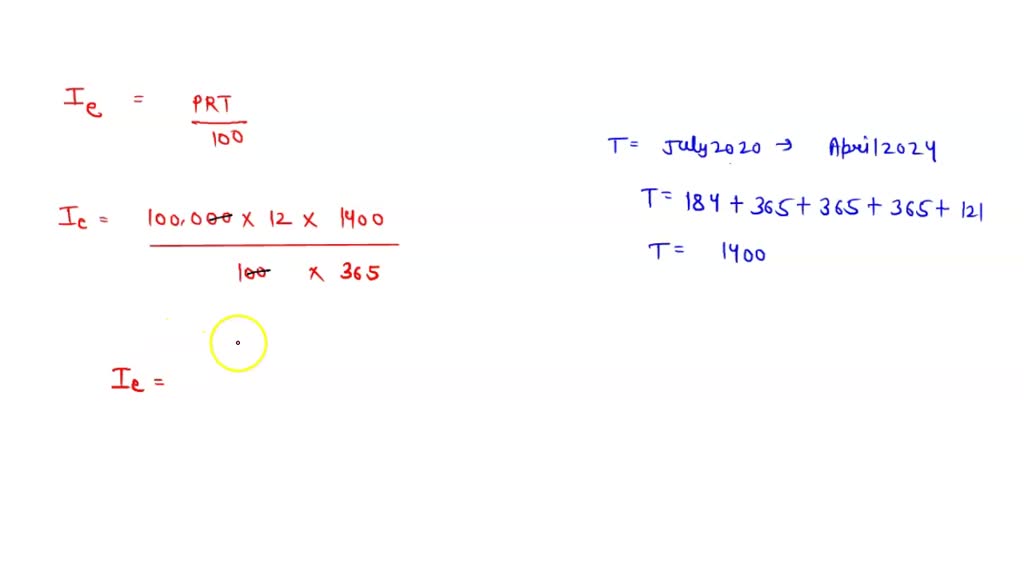 Ie = PRT
100
Ic = 100,000 x 12 x 1400
100 x 365
Ie =
T= July 2020 → April 2024
T= 184 + 365 + 365 + 365 + 121
T= 1400